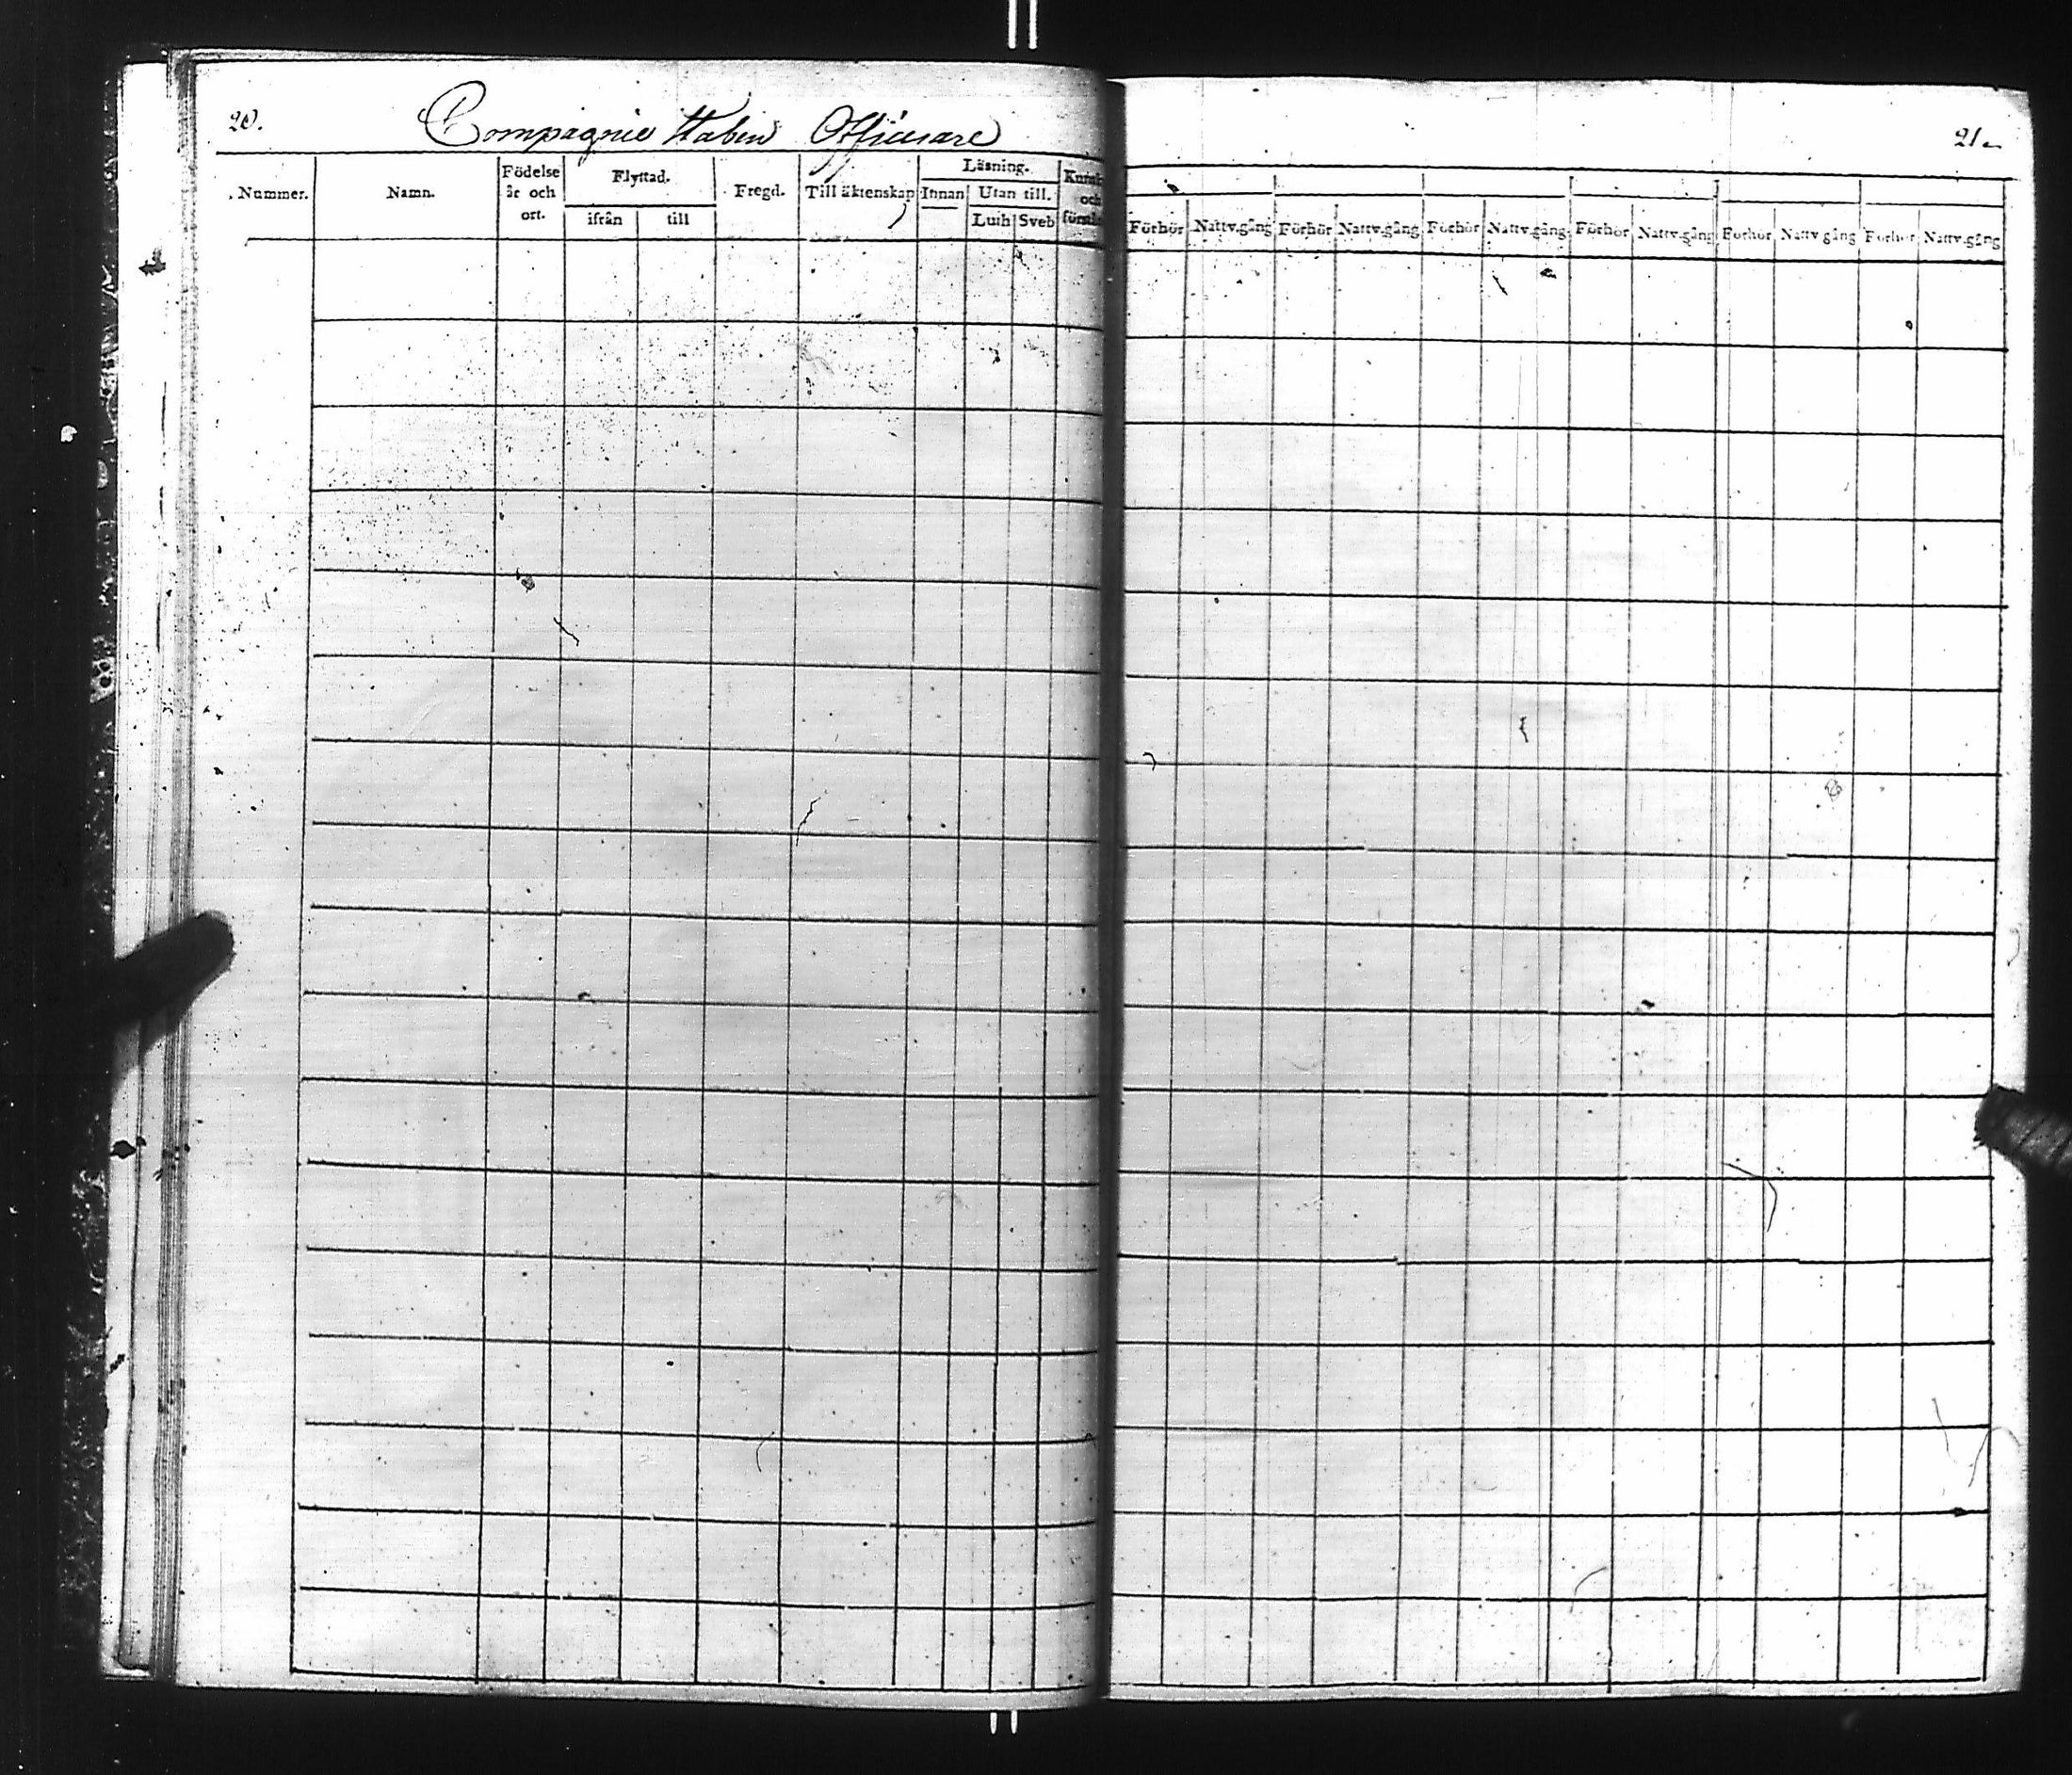 20.
Compagnie Staben Officerare
21
Nummer.
Namn.
Födelse år och ort.
Flyttad.
ifrån
till
Fregd.
Till äktenskap
Läsning.
Innan
Utan till.
Luth
Sveb
och
Förhör Nattv.gång Förhör Nattv.gång Förhör Nattv.gång Förhör Nattv.gång Förhör Nattv gång Förhör Nattv.gång